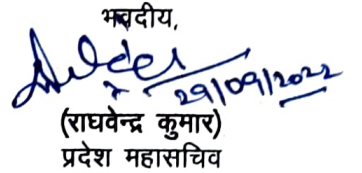 भवदीय,
29/09/2022
(राघवेन्द्र कुमार)
प्रदेश महासचिव